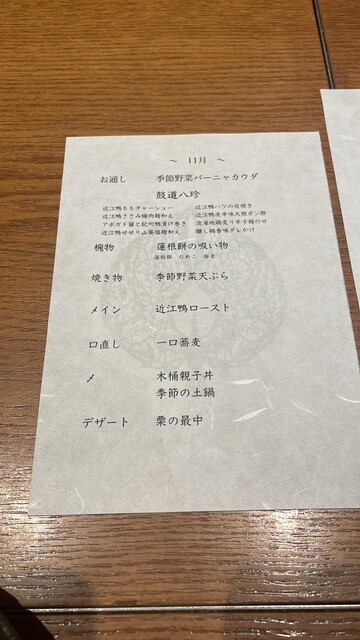 ～ 11月 ～
お通し 季節野菜バーニャカウダ
鼓道八珍
近江鴨ももチャーシュー 近江鴨ハツの炭焼き
近江鴨ささみ梅肉麹和え 近江鴨皮辛味大根ポン酢
アボカド醤と紀州鴨漬け巻き 淡海地鶏炙り辛子麹のせ
近江鴨せせり山葵塩麹和え 醸し鶏香味ダレかけ
椀物 蓮根餅の吸い物
蓮根餅 なめこ
焼き物 季節野菜天ぷら
メイン 近江鴨ロースト
口直し 一口蕎麦
〆 木桶親子丼
季節の土鍋
デザート 栗の最中